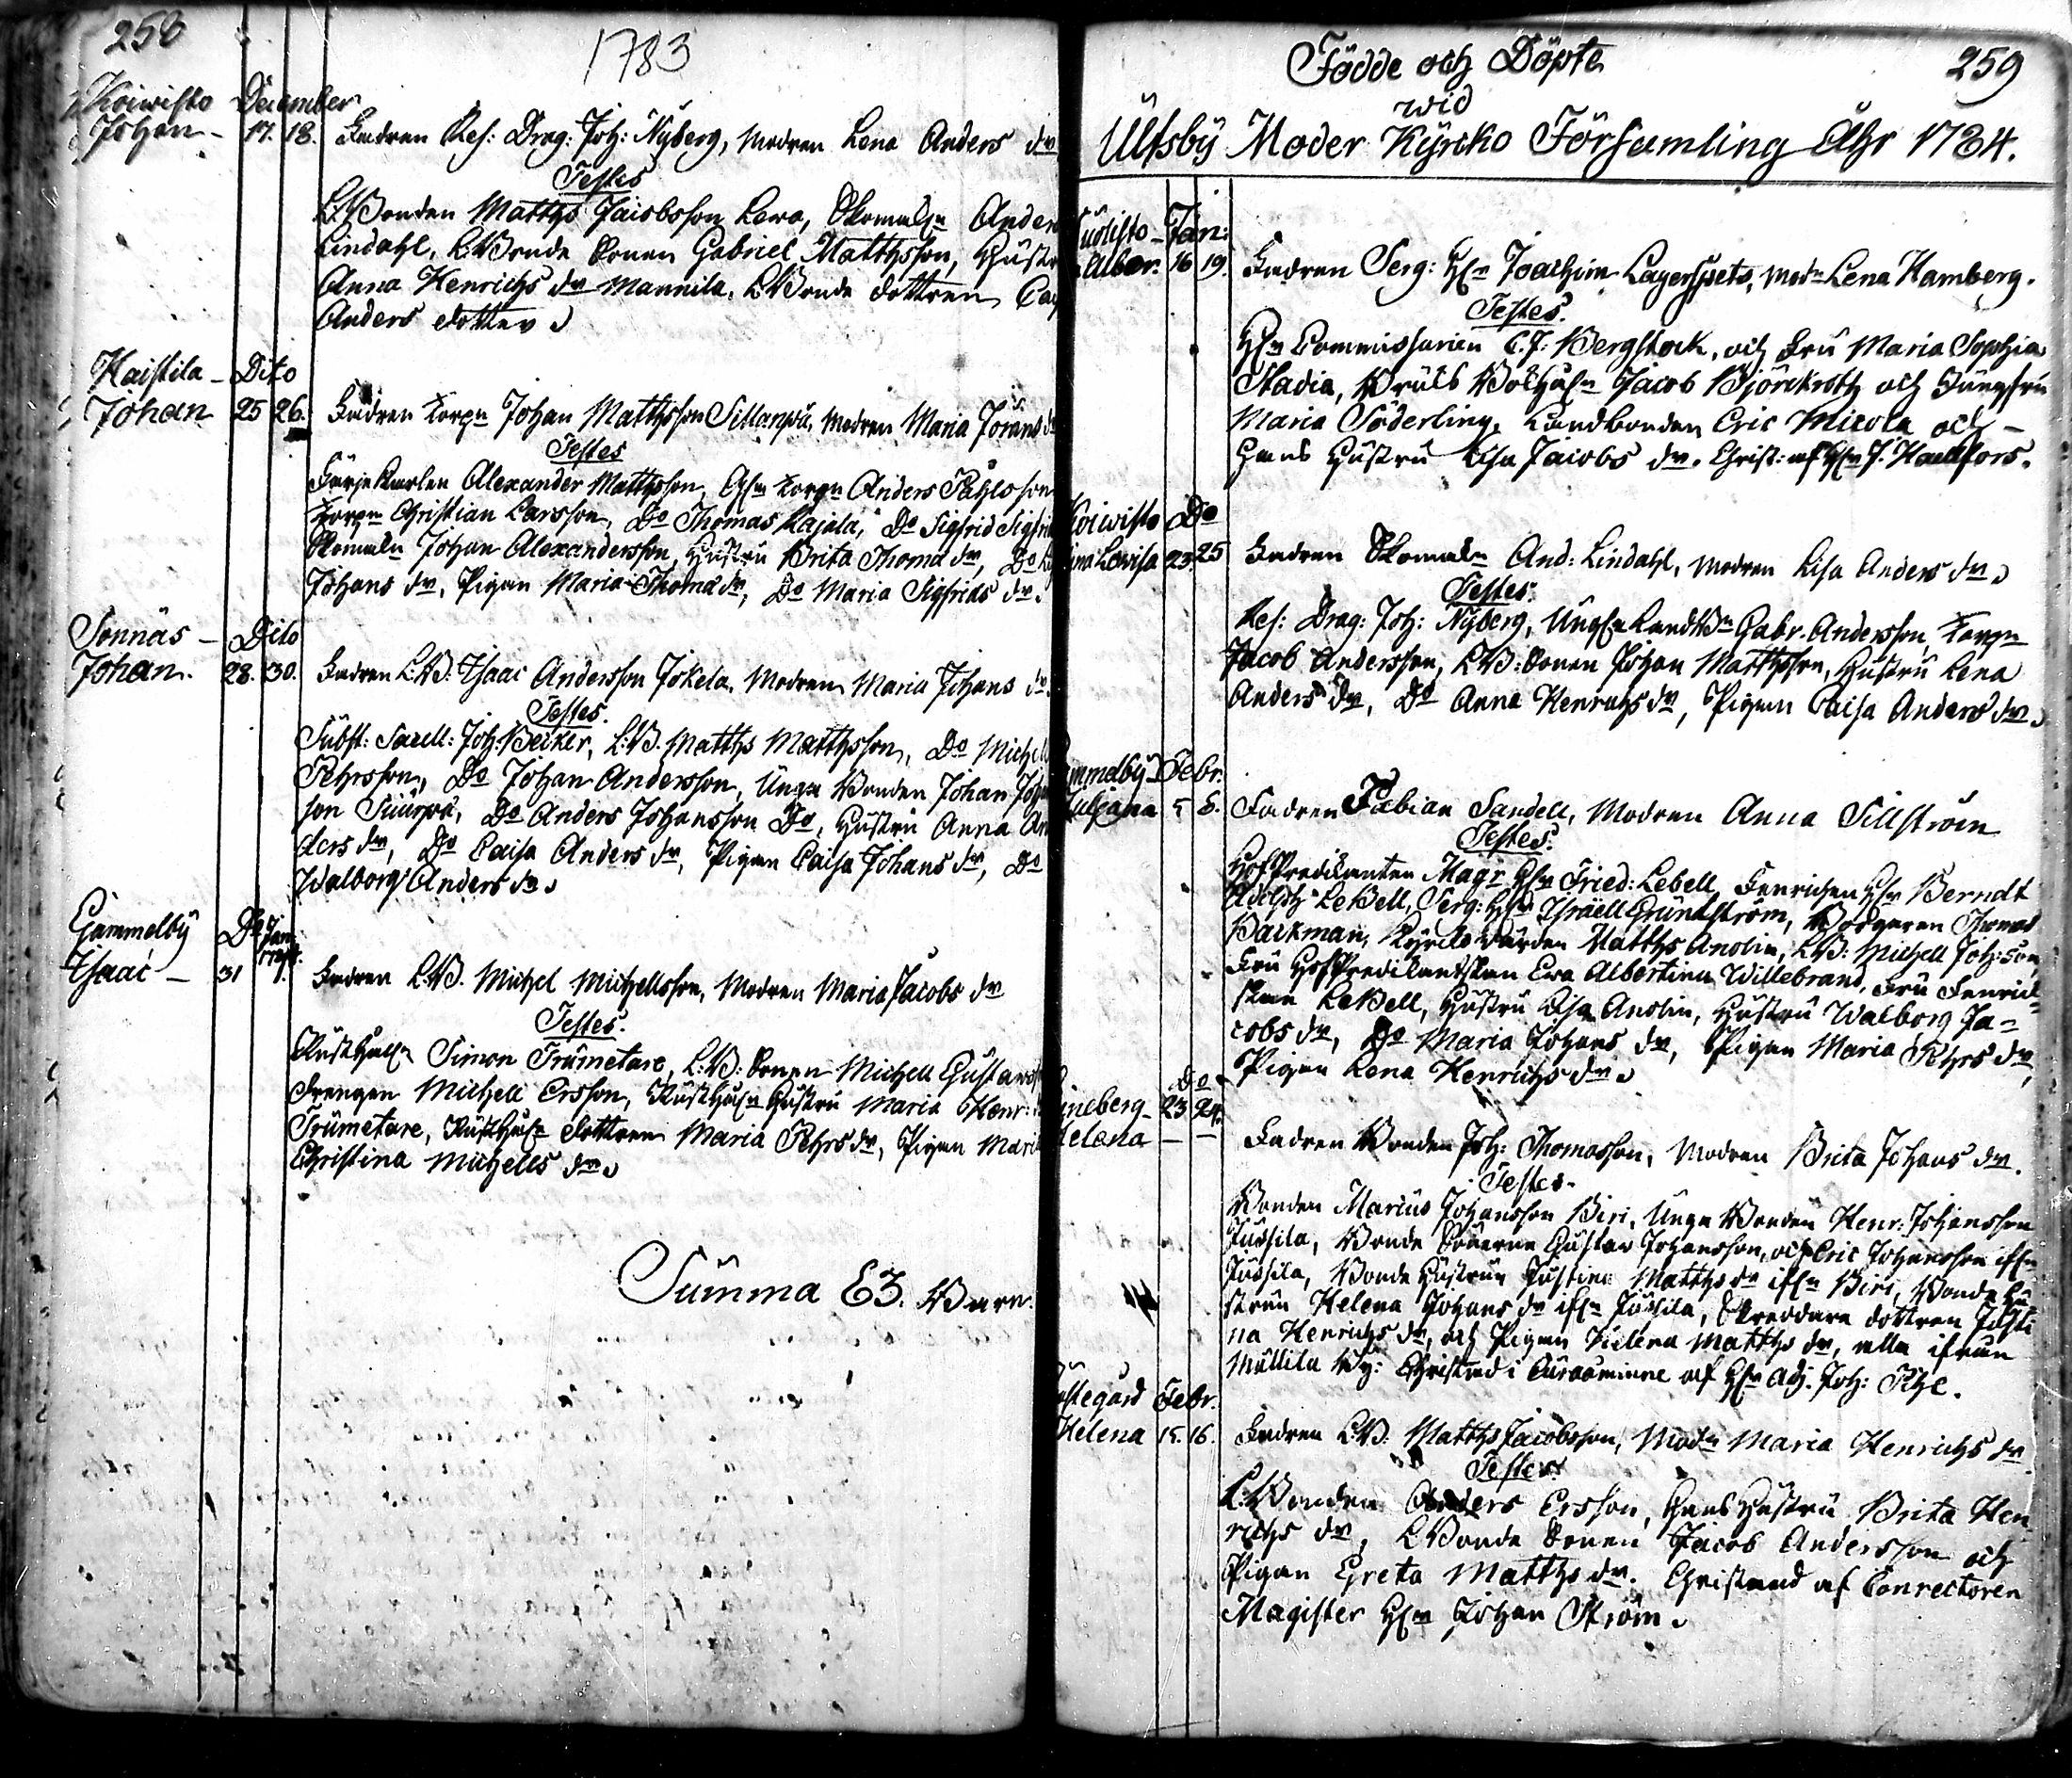 258
1783
Koiwisto December
Johan - 17. 18. Fadren Res: Drag: Joh: Nyberg, modren Lena Anders dr
Testes
LBonden Matths Jacobsson Lewa, Skomak:n Anders
Lindahl, LBonde Sonen Gabriel Matthsson, Hustru
Anna Henrichs dr Mannila, LBonde dottren
Anders dotter
Kaistila - Dito
Johan 25 26. Fadren Torp:n Johan Matthsson Sillanpä, modren Maria Jörans dr
Testes
Färje Karlen Alexander Matthsson, Torp:n Anders Påhlsson
Torp:n Christian Larsson, Do Thomas Kajala, Do Sigfrid
Skomak:n Johan Alexandersson, Hustru Brita Thoma dr, Do
Johans dr, Pigan Maria Thoma dr, Do Maria Sigfrids dr.
Sonnäs - Dito
Johan. 28. 30. Fadren L:B. Isaac Andersson Jokela, Modren Maria Johans dr.
Testes.
Subst: Sacell: Joh: Becker, L:B. Matths Matthsson, Do Michell
Pehrsson, Do Johan Andersson, Unga Bonden Johan
son Suurpä, Do Anders Johansson Do, Hustru Anna An
ders dr, Do Caisa Anders dr, Pigan Caisa Johans dr, Do
Walborg Anders dr
Gammelby Do Jan: 1784.
Isaac - 31 1. Fadren L:B. Michel Michellsson, Modren Maria Jacobs dr
Testes.
Rusthåll:n Simon Trumetare, L:B: Sonen Michell Gustavs
Drengen Michell Ersson, Rusthåll:n Hustru Maria Henr:
Trumetare, Rusthåll:n dottren Maria Pehrs dr, Pigan Maria
Christina Michells dr
Summa 83. Barn.
259
Födde och Döpte
wid
Ulfsby Moder Kyrcko Församling Åhr 1784.
Jan:
Alber. 16 19. Fadren Serg: H:n Joachim Lagerspets, Mod:n Lena Hamberg.
Testes.
H:n Commissarien C. J: Bergstock, och Fru Maria Sophia
Stadia, Bruks Bokhåll:n Jacob Björckroth och Jungfru
Maria Söderling, Landbonden Eric Micola och -
Hans Hustru Lisa Jacobs dr. Christ: af H:n J. Haällfors.
Koiwisto Do
Lowisa 23. 25 Fadren Skomak:n And: Lindahl, modren Lisa Anders dr
Testes.
Res: Drag: Joh: Nyberg, Ung:n LandB:n Gabr. Andersson, Torp:n
Jacob Andersson, LB: Sonen Johan Matthsson, Hustru Lena
Anders dr, Do Anna Henrichs dr, Pigan Caisa Anders dr
mmelby Febr.
Juliana 5 8. Fadren Fabian Sandell, Modren Anna Sillström
Testes.
HofPredikanten Mag:r H:n Fried: Lebell, Fenricken H:n Berndt
Adolph LeBell, Serg: H:n Israell Grundström, Borgaren Thomas
Backman, Kyrckowärden Matths Anolin, LB: Michell Joh:son,
Fru HofPredikantskan Ewa Albertina Willebrand, Fru Fenrick
skan LeBell, Hustru Lisa Anolin, Hustru Walborg Ja=
cobs dr, Do Maria Johans dr, Pigan Maria Pehrs dr,
Pigan Lena Henrichs dr
Do
ineberg- 23 24.
Helena - - Fadren Bonden Joh: Thomasson, Modren Brita Johans dr.
Testes.
Bonden Marius Johansson Biri, Unga Bonden Henr: Johansson
Jussila, Bonde Sönerne Gustaw Johansson, och Eric Johansson if:n
Jussila, Bonde Hustrun Justina Matths dr if:n Biri, Bonde Hu
strun Helena Johans dr if:n Jussila, Skreddare dottren Justi
na Henrichs dr, och Pigan Helena Matths dr, alla ifrån
Mullila By: Christnad i Euraåminne af H:n Adj. Joh: Pihl.
Febr.
Helena 15. 16. Fadren LB. Matths Jacobsson, Mod:n Maria Henrichs dr
Testes.
L:Bonden Anders Ersson, Hans Hustru Brita Hen
richs dr, LBonde Sonen Jacob Andersson och
Pigan Greta Matths dr. Christnad af Conrectoren
Magister H:n Johan Ström